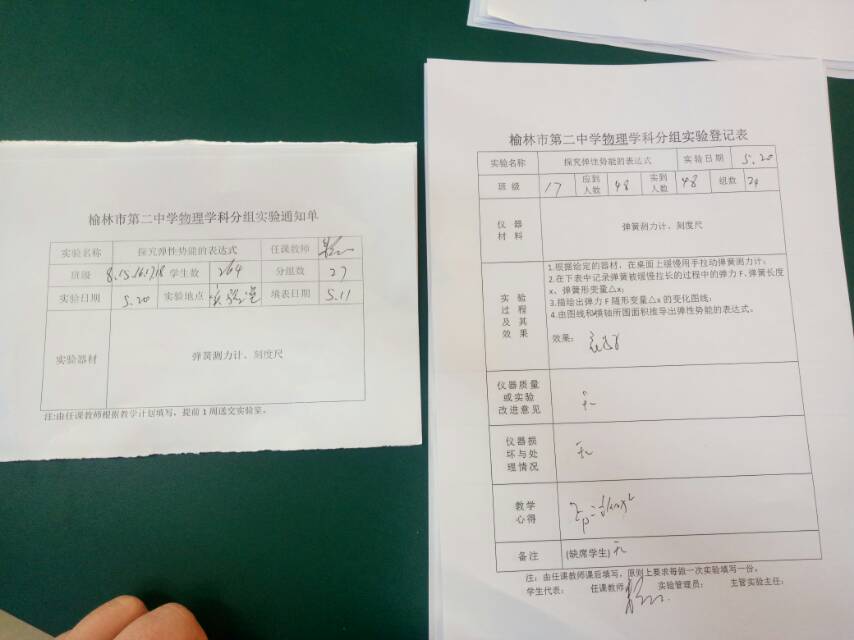 榆林市第二中学物理学科分组实验通知单
实验名称 探究弹性势能的表达式 任课教师
班级 8.15.16.17.18 学生数 264 分组数 27
实验日期 5.20 实验地点 实验室 填表日期 5.11
实验器材 弹簧测力计、刻度尺
注:由任课教师根据教学计划填写，提前1周送交实验室。
榆林市第二中学物理学科分组实验登记表
实验名称 探究弹性势能的表达式 实验日期 5.20
班级 17 应到人数 48 实到人数 48 组数 24
仪器材料 弹簧测力计、刻度尺
实验过程及其效果
1.根据给定的器材，在桌面上缓慢用手拉动弹簧测力计；
2.在下表中记录弹簧被缓慢拉长的过程中的弹力F、弹簧长度
x、弹簧形变量△x；
3.描绘出弹力F随形变量△x的变化图线；
4.由图线和横轴所围面积推导出弹性势能的表达式。
效果：
仪器质量或实验改进意见 无
仪器损坏与处理情况 无
教学心得
备注 (缺席学生) 无
注：由任课教师课后填写，原则上要求每做一次实验填写一份。
学生代表： 任课教师 实验管理员： 主管实验主任：